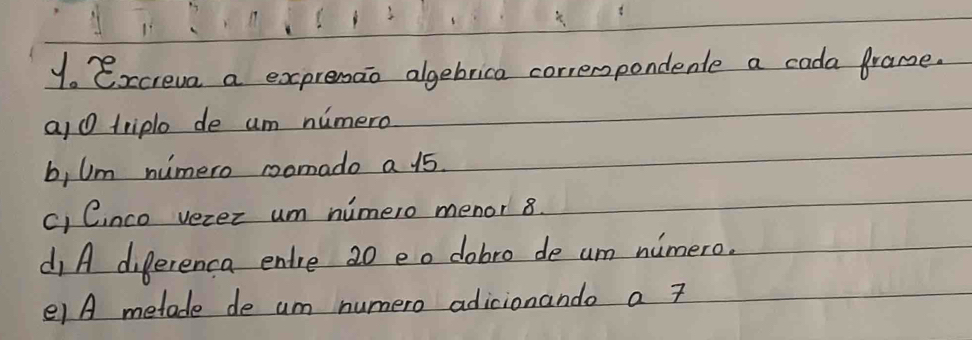 1. Excreva a expresão algebrica correspondente a cada frase.
a) O triplo de um número
b) Um número somado a 15.
c) Cinco vezez um número menor 8.
d) A diferença entre 20 e o dobro de um número.
e) A metade de um numero adicionando a 7